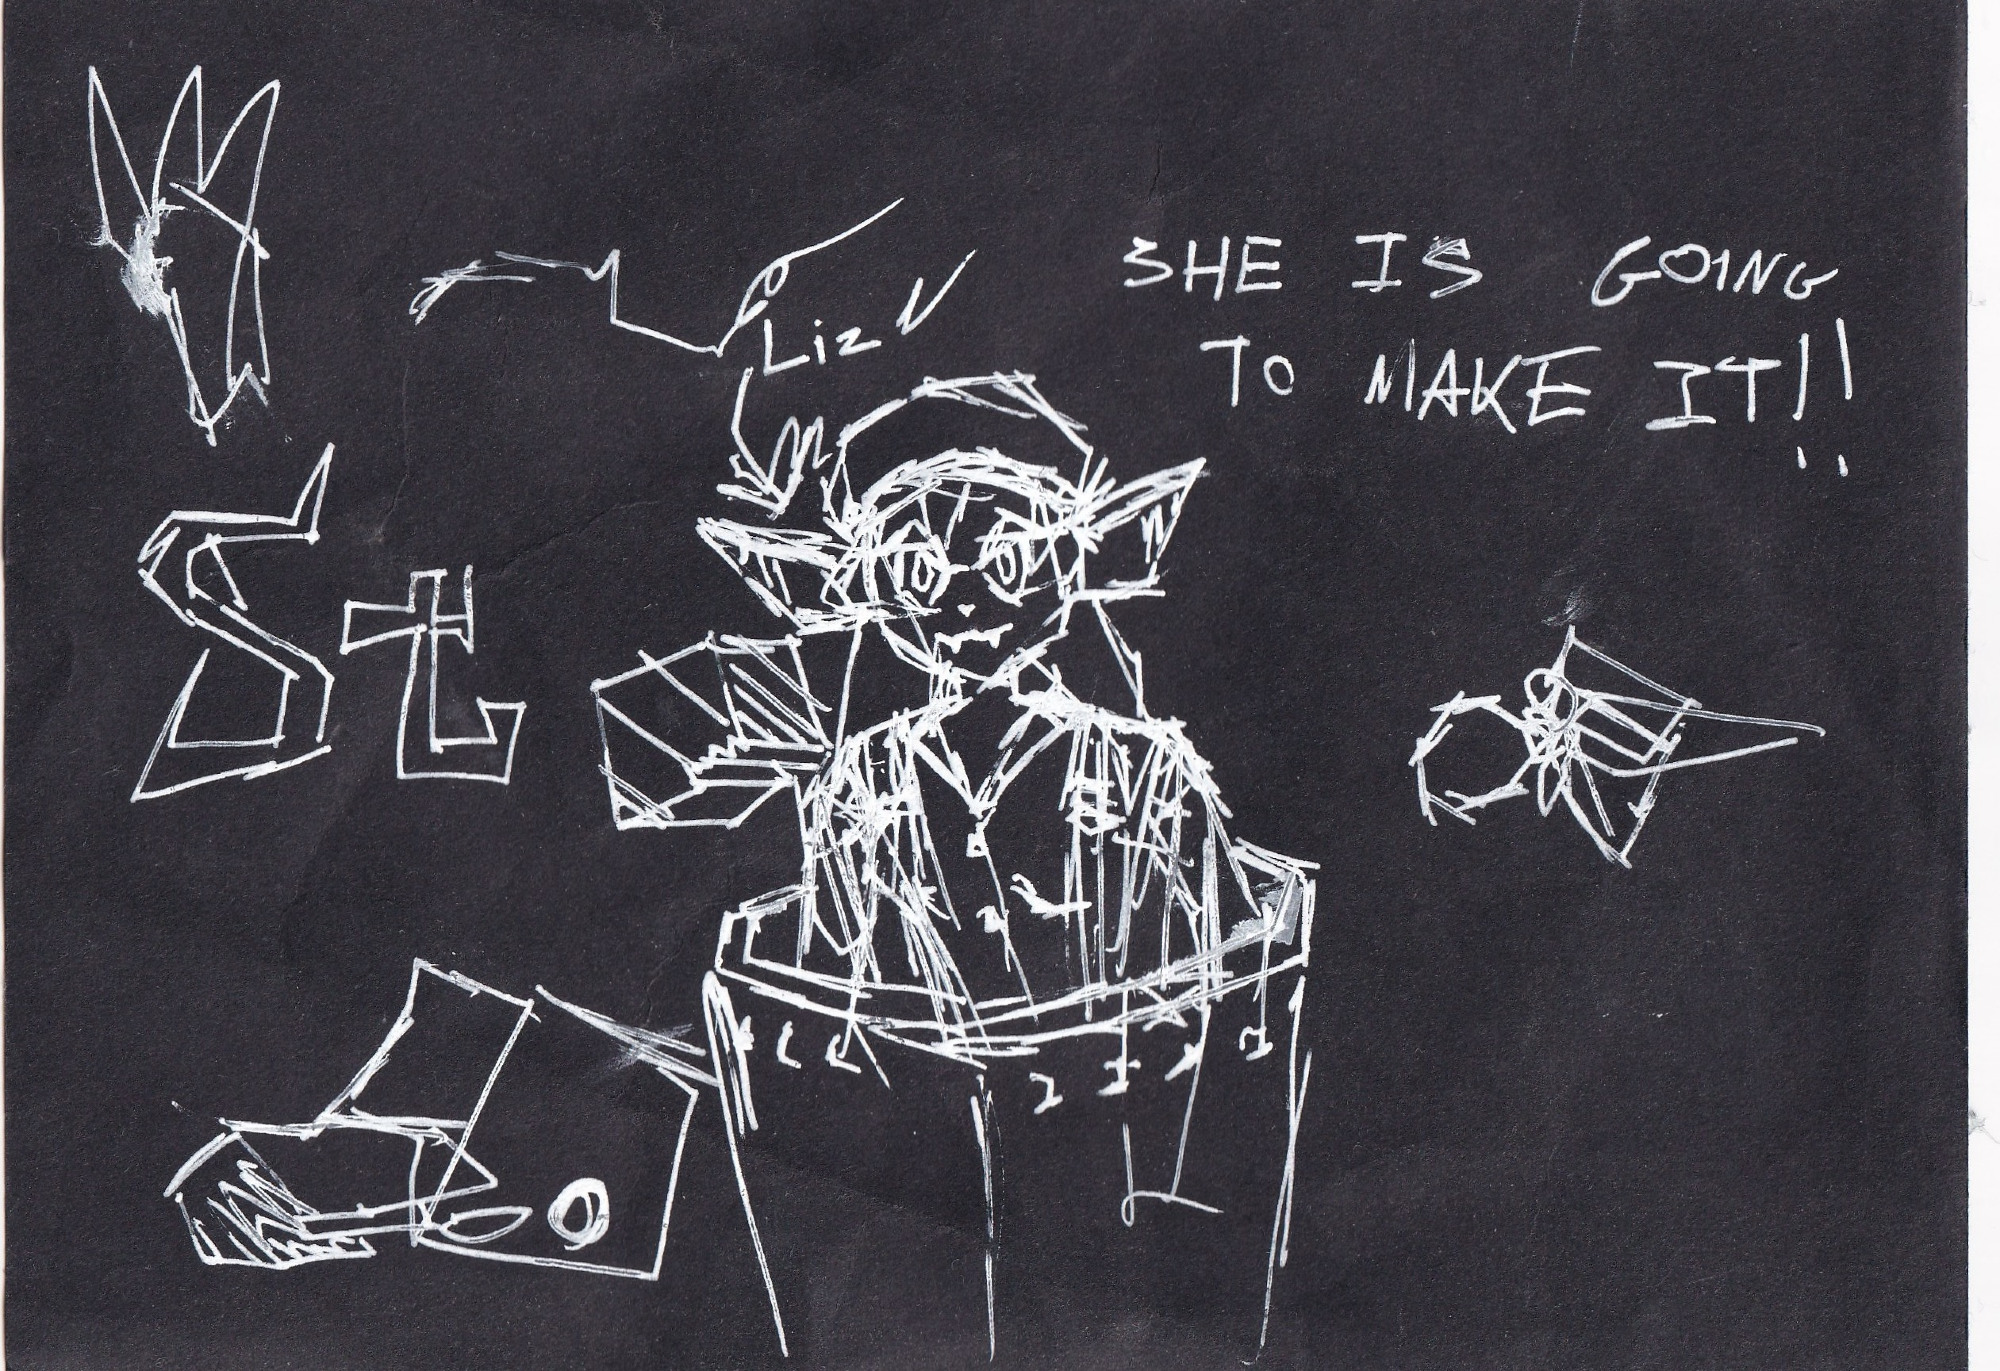 Liz
SHE IS GOING
TO MAKE IT!!
St